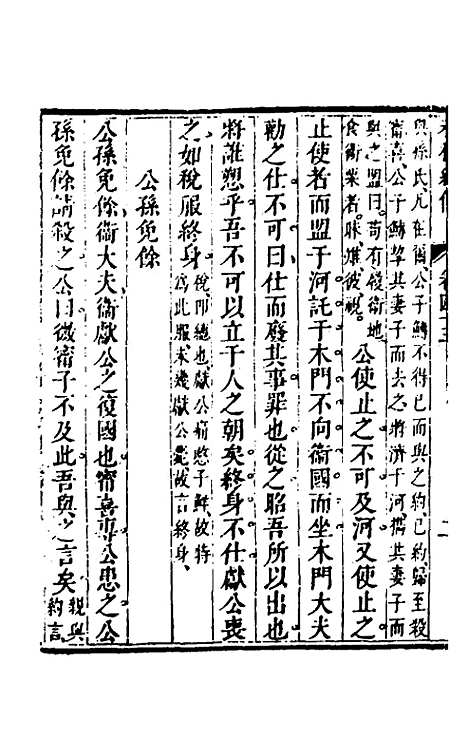 與孫氏凡在爾公子鱄不得已而與之約已約歸至殺
甯喜公子鱄挈其妻子而去之將濟于河攜其妻子而
與之盟曰苟有履衞地
食衞粟者昧雉彼視公使止之不可及河又使止之
止使者而盟于河託于木門不向衞國而坐木門大夫
勸之仕不可曰仕而廢其事罪也從之昭吾所以出也
將誰愬乎吾不可以立于人之朝矣終身不仕獻公喪
之如稅服終身稅即繐也獻公痛愍子鮮故特
爲此服未幾獻公薨故言終身
公孫免餘
公孫免餘衞大夫衞獻公之復國也甯喜專公患之公
孫免餘請殺之公曰微甯子不及此吾與之言矣親與
約言